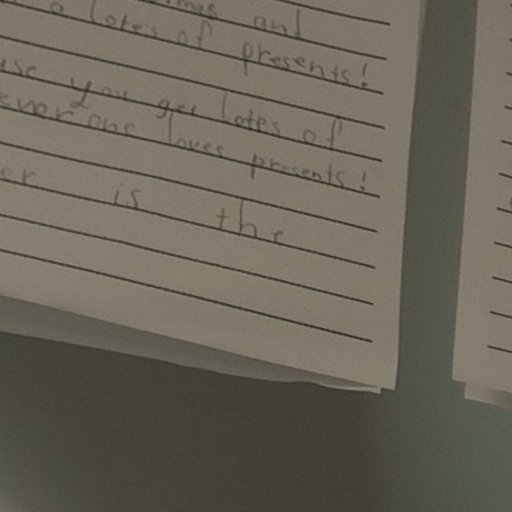 and
a lotes of presents!
you get lotes of
everone loves presents!
er is the